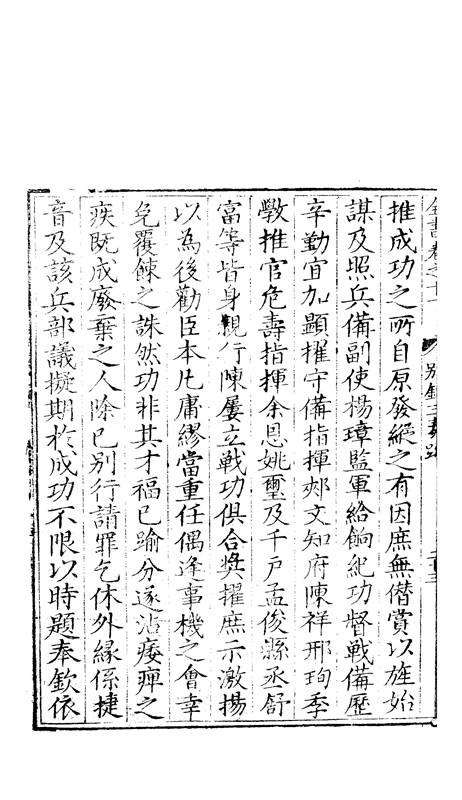 全書卷之十一 別錄三奏疏
推成功之所自原發縱之有因庶無僭賞以旌始
謀及照兵備副使楊璋監軍給餉紀功督戰備歷
辛勤宜加顯擢守備指揮郟文知府陳祥邢珣季
斆推官危壽指揮余恩姚璽及千戶孟俊縣丞舒
富等皆身親行陳屢立戰功俱合奬擢庶示激揚
以為後勸臣本凡庸繆當重任偶逢事機之會幸
免覆餗之誅然功非其才福已踰分遂沾痿痺之
疾既成廢棄之人除已别行請罪乞休外緣係捷
音及該兵部議擬期於成功不限以時題奉欽依